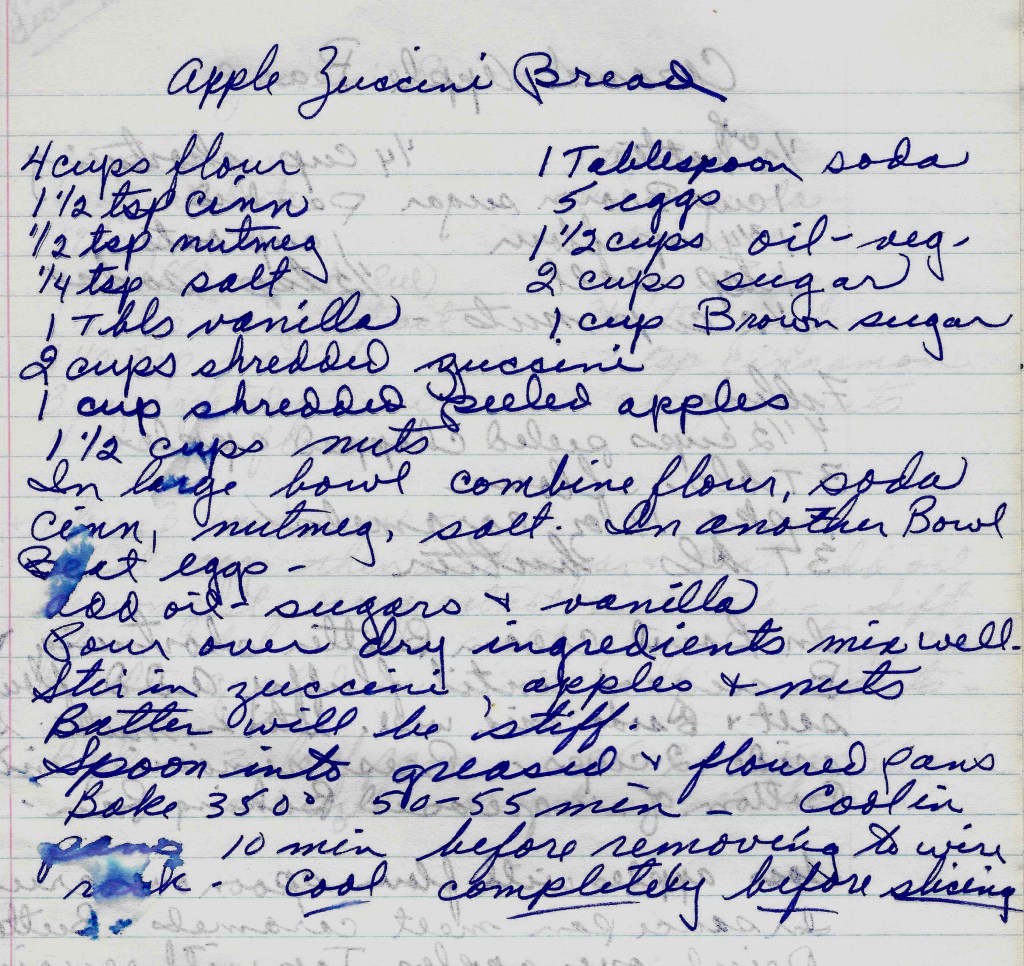 Apple Zuccini Bread
4 cups flour 1 Tablespoon soda
1 1/2 tsp cinn 5 eggs
1/2 tsp nutmeg 1 1/2 cups oil - veg.
1/4 tsp salt 2 cups sugar
1 Tbls vanilla 1 cup Brown sugar
2 cups shredded zuccini
1 cup shredded peeled apples
1 1/2 cups nuts
In large bowl combine flour, soda
cinn, nutmeg, salt. In another Bowl
Beat eggs -
add oil - sugars & vanilla
Pour over dry ingredients mix well.
Stir in zuccini, apples & nuts
Batter will be stiff.
Spoon into greased & floured pans
Bake 350° 50-55 min - Cool in
pans 10 min before removing to wire
rack - Cool completely before slicing